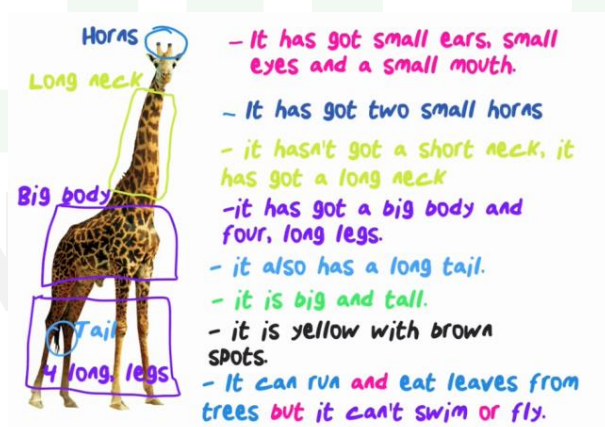 Horns
Long neck
Big body
Tail
4 long, legs
- It has got small ears, small
eyes and a small mouth.
- It has got two small horns
- it hasn't got a short neck, it
has got a long neck
-it has got a big body and
four, long legs.
- it also has a long tail.
- it is big and tall.
- it is yellow with brown
spots.
- It can run and eat leaves from
trees but it can't swim or fly.